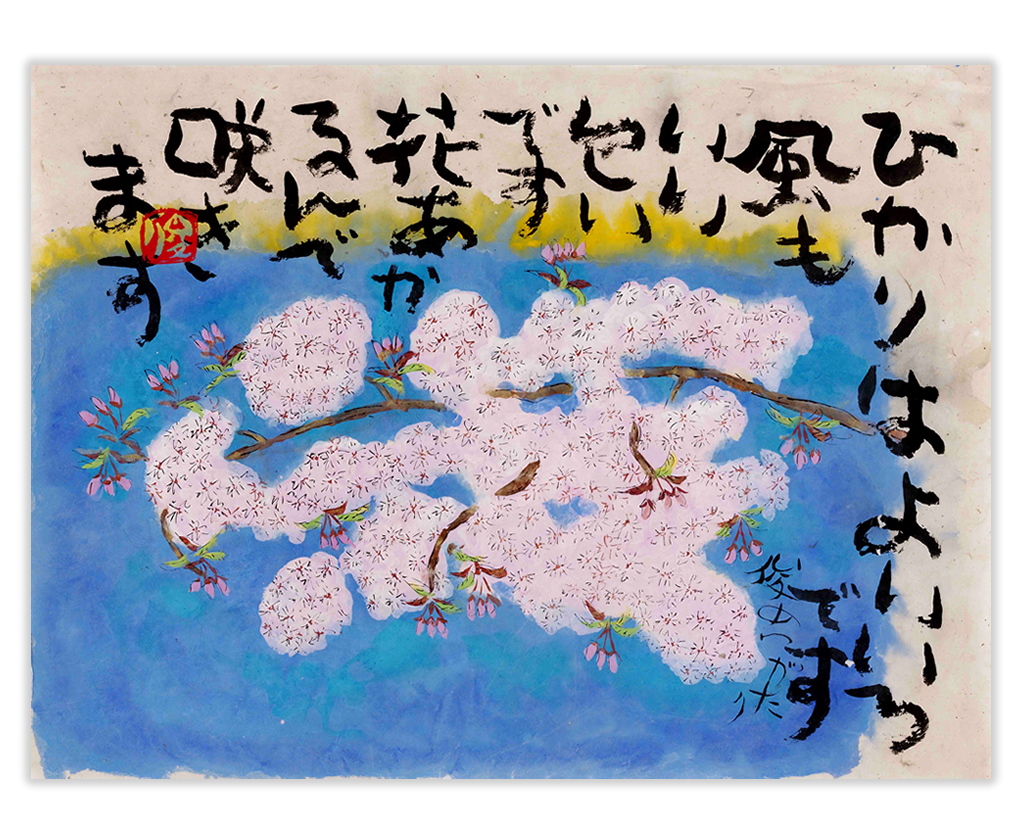 ひかりはよいいろ
です
風も
いい
です
花あか
るんで
咲き
ます
俊